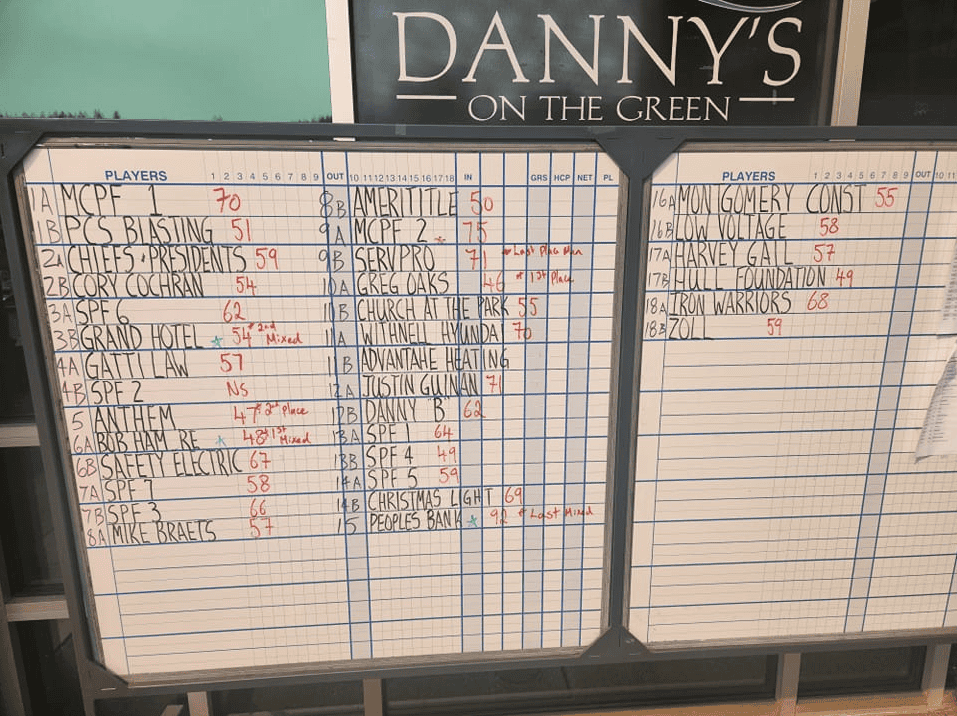 DANNY'S
ON THE GREEN
PLAYERS 1 2 3 4 5 6 7 8 9 OUT 10 11 12 13 14 15 16 17 18 IN GRS HCP NET PL
1A MCPF 1 70
1B PCS BLASTING 51
2A CHIEFS · PRESIDENTS 59
2B CORY COCHRAN 54
3A SPF 6 62
3B GRAND HOTEL * 54 * 2nd Mixed
4A GATTI LAW 57
4B SPF 2 NS
5 ANTHEM 47 * 2nd Place
6A BOB HAM RE * 48 * 1st Mixed
6B SAFETY ELECTRIC 67
7A SPF 7 58
7B SPF 3 66
8A MIKE BRAETS 57
8B AMERITITLE 50
9A MCPF 2 * 75
9B SERVPRO 71 * Last Place Men
10A GREG OAKS 46 * 1st Place
10B CHURCH AT THE PARK 55
11A WITHNELL HYUNDAI 70
11B ADVANTAHE HEATING
12A JUSTIN GUINAN 71
12B DANNY B 62
13A SPF 1 64
13B SPF 4 49
14A SPF 5 59
14B CHRISTMAS LIGHT 69
15 PEOPLES BANK * 92 * Last Mixed
PLAYERS 1 2 3 4 5 6 7 8 9 OUT 10 11
16A MONTGOMERY CONST 55
16B LOW VOLTAGE 58
17A HARVEY GAIL 57
17B HULL FOUNDATION 49
18A IRON WARRIORS 68
18B ZOLL 59